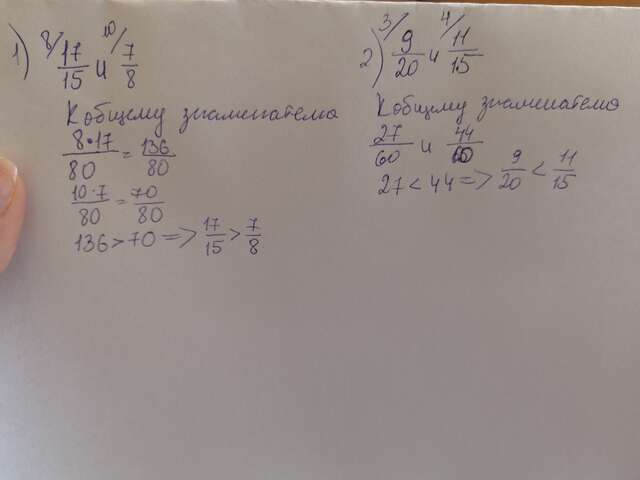 1) 8/ 17/15 и 10/ 7/8
К общему знаменателю
8·17/80 = 136/80
10·7/80 = 70/80
136 > 70 => 17/15 > 7/8
2) 3/ 9/20 и 4/ 11/15
К общему знаменателю
27/60 и 44/60
27 < 44 => 9/20 < 11/15